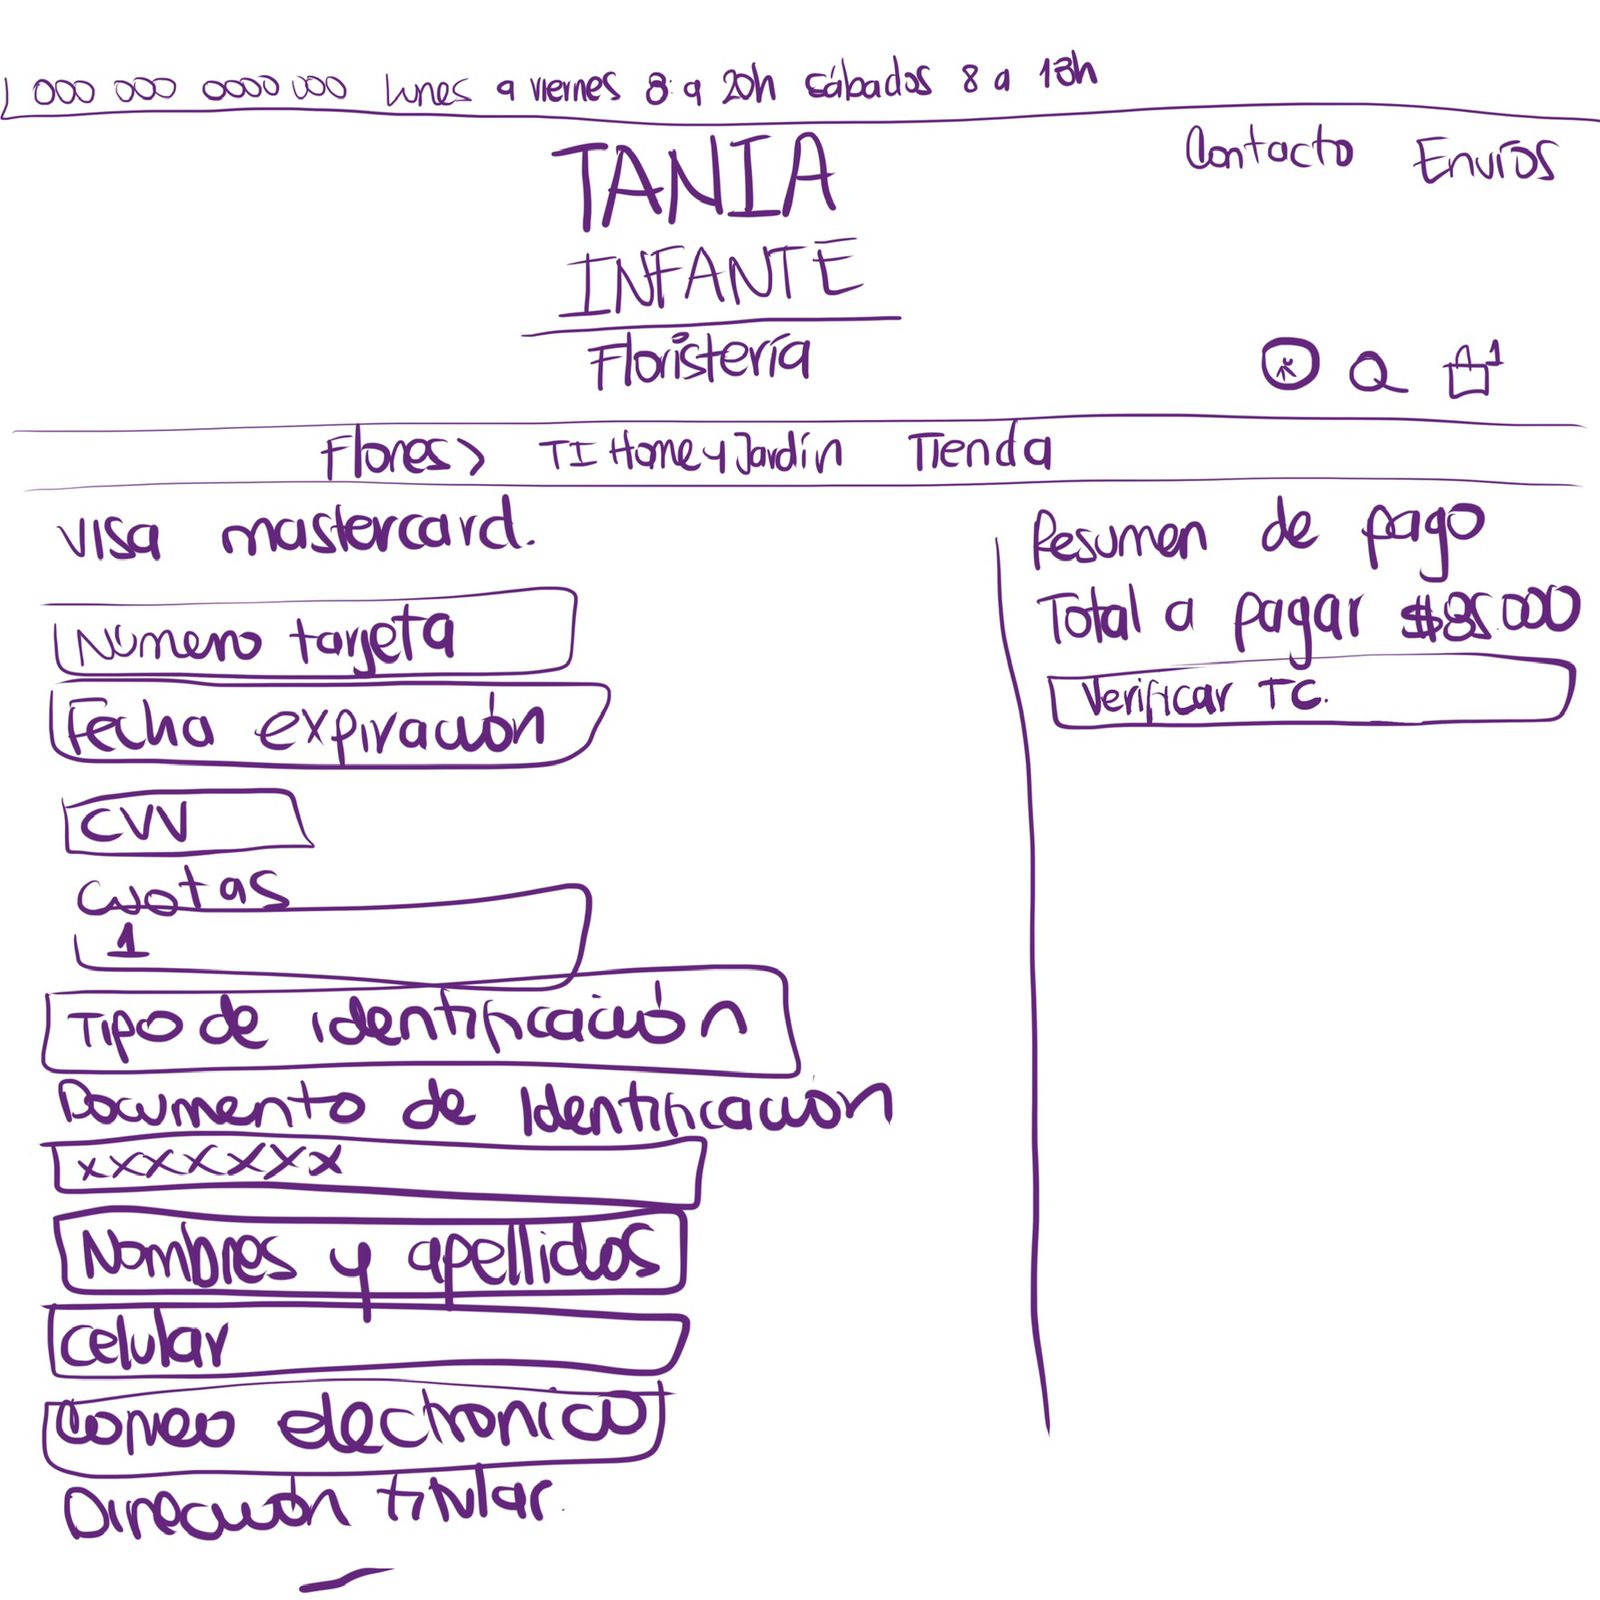 000 000 0000 000 lunes a viernes 8 a 20h sábados 8 a 18h
Contacto Envíos
TANIA
INFANTE
Floristería
1
Flores > TI Home y Jardín Tienda
VISA mastercard.
Número tarjeta
Fecha expiración
CVV
Cuotas
1
Tipo de identificación
Documento de Identificación
xxxxxxyx
Nombres y apellidos
Celular
Correo electronico
Dirección titular.
Resumen de pago
Total a pagar $85.000
Verificar TC.